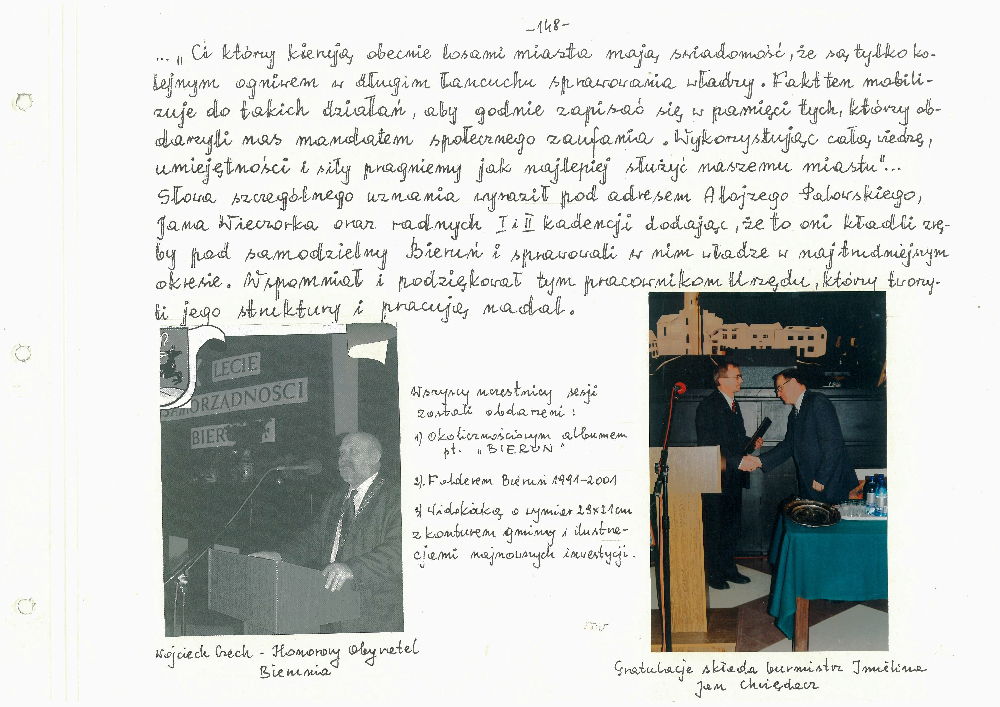 -148-
... „ Ci którzy kierują obecnie losami miasta mają świadomość, że są tylko ko-
lejnym ogniwem w długim łańcuchu sprawowania władzy. Fakt ten mobili-
zuje do takich działań, aby godnie zapisać się w pamięci tych, którzy ob-
darzyli nas mandatem społecznego zaufania. Wykorzystując całą wiedzę,
umiejętności i siły pragniemy jak najlepiej służyć naszemu miastu"...
Słowa szczególnego uznania wyraził pod adresem Alojzego Palowskiego,
Jana Wieczorka oraz radnych I i II kadencji dodając, że to oni kładli zrę-
by pod samodzielny Bieruń i sprawowali w nim władze w najtrudniejszym
okresie. Wspomniał i podziękował tym pracownikom Urzędu, którzy tworzy-
li jego struktury i pracują nadal.
LECIE
SAMORZĄDNOŚCI
BIER
Wszyscy uczestnicy sesji
zostali obdarzeni :
1) Okolicznościowym albumem
pt. „BIERUŃ"
2). Folderem Bieruń 1991-2001
3) Widokówką o wymiar 29x21cm
z konturem gminy i ilustra-
cjami najnowszych inwestycji.
Wojciech Czech - Honorowy Obywatel
Bierunia
Gratulacje składa burmistrz Imielina
Jan Chwiędacz